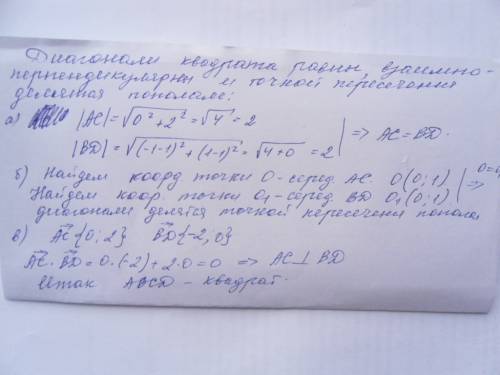 Диагонали квадрата равны, взаимно-
перпендикулярны и точкой пересечения
делятся пополам:
а) |AC|=√0²+2²=√4=2
|BD|=√(-1-1)²+(1-1)²=√4+0=2 | => AC=BD.
б) Найдем коорд точки O-серед. AC. O(0;1) | =>
Найдем коор. точки O₁-серед. BD O₁(0;1)
диагонали делятся точкой пересечения
в) AC{0;2} BD{-2,0}
AC·BD=0·(-2)+2·0=0 => AC⊥BD
Итак ABCD-квадрат.